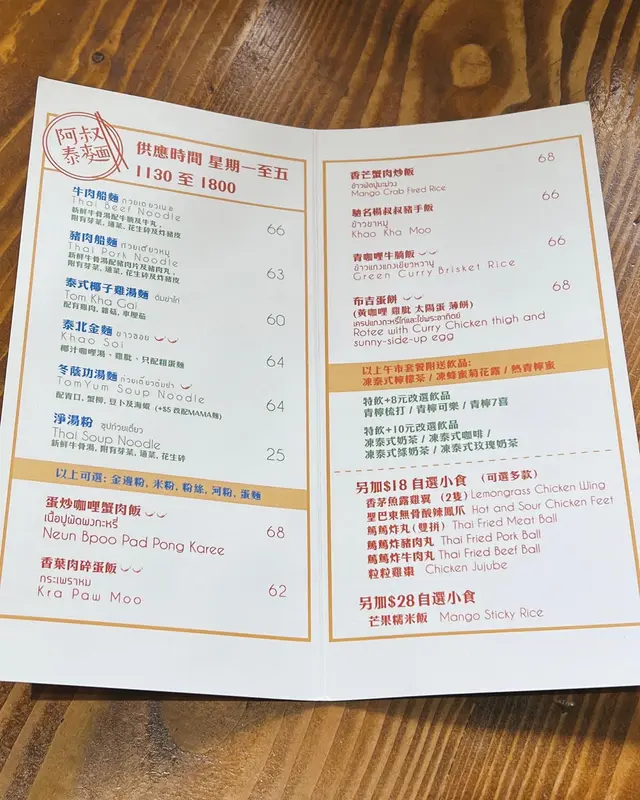 阿叔
泰麵
供應時間 星期一至五
1130 至 1800
牛肉船麵 ก๋วยเตี๋ยวเนื้อ
Thai Beef Noodle
新鮮牛骨湯配牛腩及牛丸,
附有芽菜, 通菜, 花生碎及炸豬皮
66
豬肉船麵 ก๋วยเตี๋ยวหมู
Thai Pork Noodle
新鮮牛骨湯配豬肉片及豬肉丸,
附有芽菜, 通菜, 花生碎及炸豬皮
63
泰式椰子雞湯麵 ต้มข่าไก่
Tom Kha Gai
配有雞肉, 雜菇, 車厘茄
60
泰北金麵 ข้าวซอย
Khao Soi
椰汁咖哩湯、雞髀、只配粗蛋麵
64
冬蔭功湯麵 ก๋วยเตี๋ยวต้มยำ
TomYum Soup Noodle
配青口, 蟹柳, 豆卜及海蝦 (+$5 改配MAMA麵)
64
淨湯粉 ซุปก๋วยเตี๋ยว
Thai Soup Noodle
新鮮牛骨湯, 附有芽菜, 通菜, 花生碎
25
以上可選: 金邊粉, 米粉, 粉絲, 河粉, 蛋麵
蛋炒咖哩蟹肉飯
เนื้อปูผัดผงกะหรี่
Neun Bpoo Pad Pong Karee
68
香葉肉碎蛋飯
กระเพราหม
Kra Paw Moo
62
香芒蟹肉炒飯
ข้าวผัดปูมะม่วง
Mango Crab Fired Rice
68
馳名楊叔叔豬手飯
ข้าวขาหมู
Khao Kha Moo
66
青咖哩牛腩飯
ข้าวแกงแกงเขียวหวานู
Green Curry Brisket Rice
66
布吉蛋餅
(黃咖哩 雞髀 太陽蛋 薄餅)
เครปแกงกะหรี่ไก่และไข่พระอาทิตย์
Rotee with Curry Chicken thigh and
sunny-side-up egg
68
以上午市套餐附送飲品:
凍泰式檸檬茶 / 凍蜂蜜菊花露 / 熱青檸蜜
特飲+8元改選飲品
青檸梳打 / 青檸可樂 / 青檸7喜
特飲+10元改選飲品
凍泰式奶茶 / 凍泰式咖啡 /
凍泰式綠奶茶 / 凍泰式玫瑰奶茶
另加$18 自選小食 (可選多款)
香茅魚露雞翼 (2隻) Lemongrass Chicken Wing
聖巴東無骨酸辣鳳爪 Hot and Sour Chicken Feet
篤篤炸丸 (雙拼) Thai Fried Meat Ball
篤篤炸豬肉丸 Thai Fried Pork Ball
篤篤炸牛肉丸 Thai Fried Beef Ball
粒粒雞棗 Chicken Jujube
另加$28 自選小食
芒果糯米飯 Mango Sticky Rice